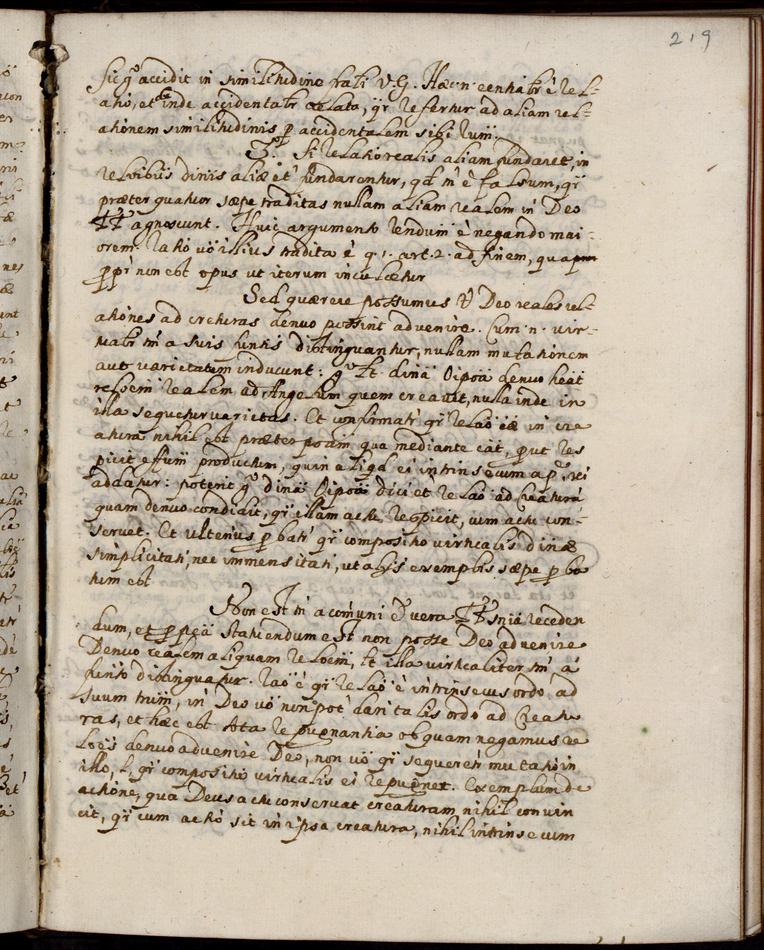 219
Sic gͦ accidit in similitudine V.G. Hæc n. eenhatr ĩ rel-
atio, et inde accidentatr oblata, qr̃ refertur ad aliam rel-
ationem similitudinis p accidentalem sibi
3.º Si relatio realis aliam fundaret, in
relõibus dinis aliæ et fundarentur, qd tñ ẽ falsum, qr̃
præter quatuor sæpe traditas nullam aliam realem in Deo
TT agnoscunt. Huic argumento ẽ negando mai-
orem. Ratio võ illius tradita ẽ q. 1. art. 2. ad finem, qua
non est opus ut iterum inculcetur
Sed quærere possumus Deo reales rel-
ationes ad creturas denuo possint advenire. Cum .n. vir-
tualtr tñ a suis funtis distinguantur, nullam mutationem
aut varietatem inducunt: denuo
realem ad Angelum quem creavit, nulla inde in
illa sequetur varietas. Et confirmatr qr̃ in cre
atura nihil est præter qua mediante eat, put res
picit productum, quin aliqd ei intrinsecum
addatur: poterit dici et relaõ ad creaturã
quam denuo condidit, qr̃ illam actu respicit, cum actu con-
servet. Et ulterius pbatr qr̃ compositio virtualis dinæ
simplicitati, nec immensitati, ut alijs exemplis sæpe pba
tum est
Non est tñ a com̃uni vera TT sniã receden
dum, et statuendum est non posse Deo advenire
Denuo realem aliquam relõem, lt illa virtualiter tñ a
funto distinguatur. Raõ ẽ qr̃ relaõ ẽ intrinsecus ordo, ad
suum in Deo võ non pot dari talis ordo ad Creatu
ras, et hæc est tota repugnantia ob quam negamus re
lões denuo advenire Deo, non võ qr̃ sequeretr mutatio in
illo, l qr̃ compositio virtualis ei repugnet. Exemplum de
actione, qua Deus actu conservat creaturam, nihil convin
cit, qr̃ cum actio sit in ipsa creatura, nihil intrinsecum